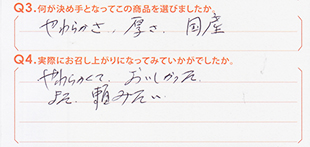 Q3.何が決め手となってこの商品を選びましたか。
やわらかさ、厚さ、国産
Q4.実際にお召し上がりになってみていかがでしたか。
やわらかくて、おいしかった。
また、頼みたい